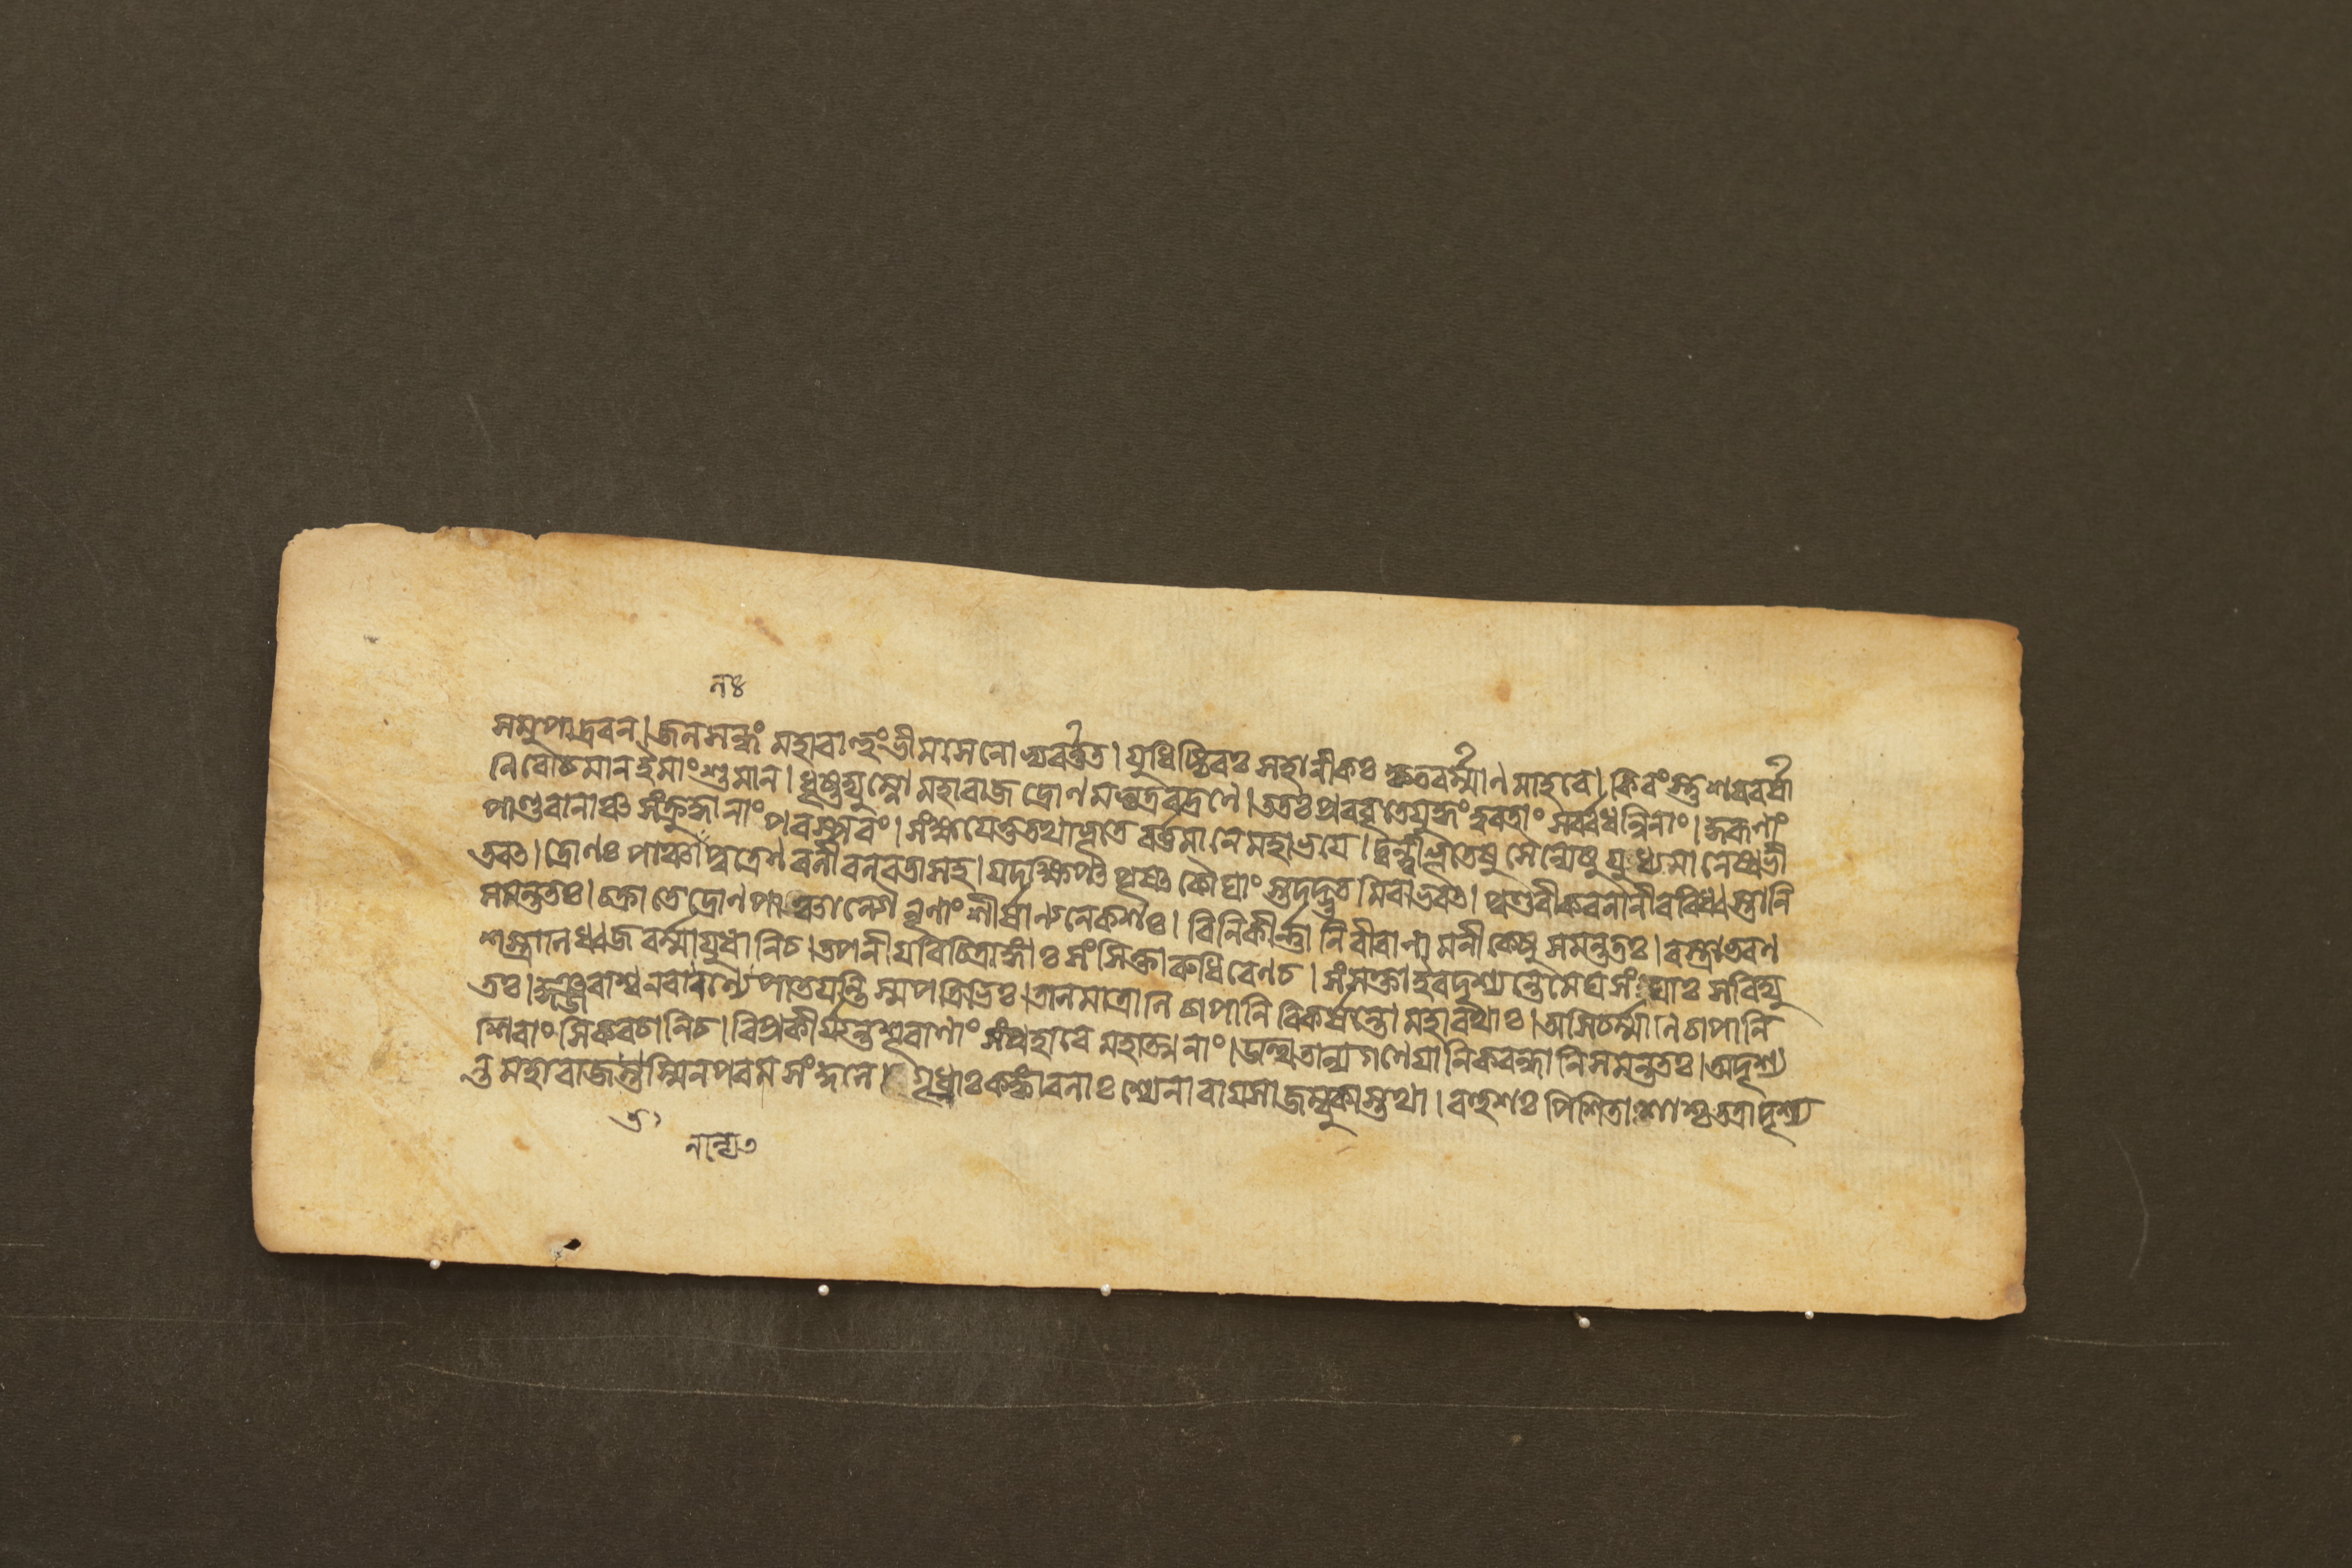 নঃ
সমুপাদ্রবন। জলসন্ধং মহাবাহুংভীমসেনো ভ্যবর্ত্তত। যুধিষ্ঠিবঃ সহানীকঃ কৃতবর্ম্মাণ মাহবে। কিবংস্তু শববর্ষা
নিবোচমান ইমাংশুমান। ধৃষ্টদ্যুম্নো মহাবাজ দ্রোণ মভ্যদ্রবদ্রণে। ততঃ প্রববৃতেযুদ্ধং ত্ববতাং সর্ব্বধন্বিনাং। কুরূণাং
পাণ্ডবানাঞ্চ সংক্রুদ্ধানাং পবস্পবং। সংক্ষযেতুতথাভূতে বর্ত্তমানে মহাভযে। দ্বন্দ্বীভূতেষু সৈন্যেষু যুধ্যমানেষ্বভী
তবত। দ্রোণঃ পাঞ্চালপুত্রেণ বলীবলবতাসহ। যদক্ষিপত পৃষৎ কৌঘাং স্তদদ্ভুত মিবাভবত। পুণ্ডবীকবনানীব বিধ্বস্তানি
সমন্ততঃ। চক্রাতে দ্রোণ পাঞ্চাল্যৌ নৃণাং শীর্ষাণ্যনেকশঃ। বিনিকীর্ণা নিবীবাণা মনীকেষু সমন্ততঃ। বস্ত্রাভবণ
শস্ত্রানিধ্বজ বর্ম্মাযুধা নিচ। তপনীযবিচিত্রাঙ্গাঃ সংসিক্তা রুধিবেণচ। সংসক্তাইবদৃশ্যন্তে মেঘ সংঘাঃ সবিদ্যু
তঃ। কুঞ্জবাশ্ব নবানন্যে পাতযন্তি স্ম পত্রিভিঃ। তালমাত্রানি চাপানি বিকর্ষন্তো মহাবথাঃ। অসিচর্ম্মানি চাপানি
শিবাংসিকবচানিচ। বিপ্রকীর্য্যন্তশূবাণাং সংপ্রহাবে মহাত্মনাং। উত্থিতান্যগণেযানিকবন্ধানিসমন্ততঃ। অদৃশ্য
ন্ত মহাবাজতস্মিনপবম সংকুলে। গৃধ্রাঃ কঙ্কাবলাঃ শ্যেনা বাযসা জম্বুকাস্তথা। বহুশঃ পিশিতাশাশ্চ তত্রাদৃশ্য